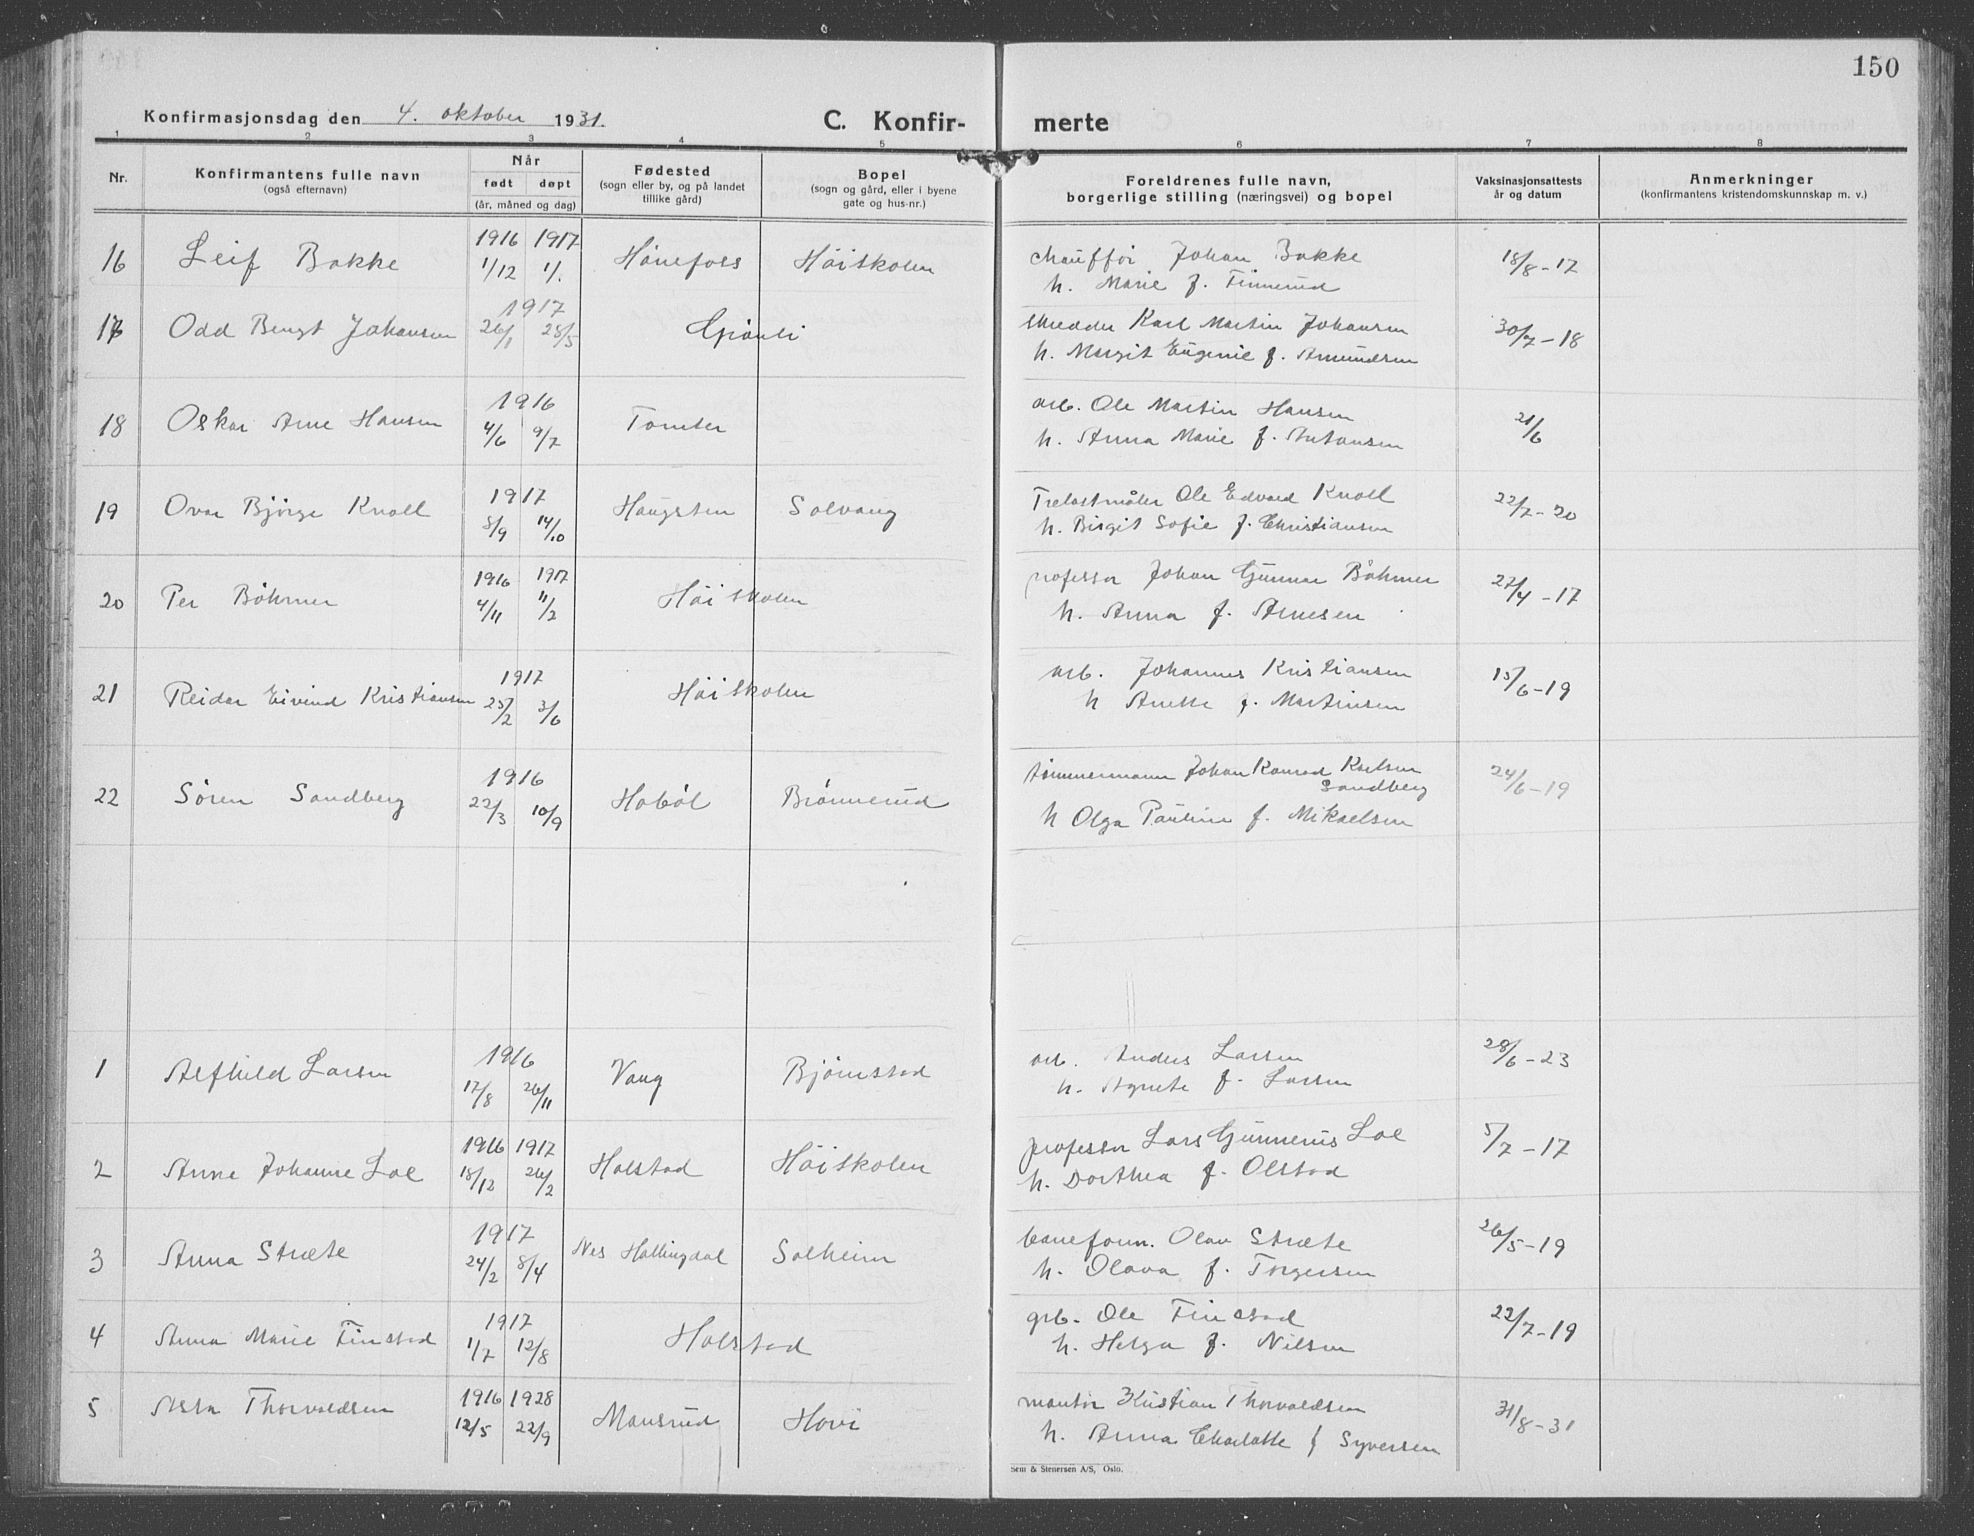 150
Konfirmasjonsdag den 4. oktober 1931.
C. Konfir- merte
1 2 3 4 5 6 7 8
Nr.
Konfirmantens fulle navn
(også efternavn)
Når
født døpt
(år, måned og dag)
Fødested
(sogn eller by, og på landet
tillike gård)
Bopel
(sogn og gård, eller i byene
gate og hus-nr.)
Foreldrenes fulle navn,
borgerlige stilling (næringsvei) og bopel
Vaksinasjonsattests
år og datum
Anmerkninger
(konfirmantens kristendomskunnskap m. v.)
16 Leif Bakke 1916 1/12 1917 1/. Hønefoss Høiskolen
chauffør Johan Bakke
h. Marie f. Finnerud
18/8-17
17 Odd Bengt Johansen 1917 26/1 28/5 Grønli
skredder Karl Martin Johansen
h. Margit Eugenie f. Amundsen
30/7-18
18 Oskar Arne Hansen 1916 4/6 9/7 Tomter
arb. Ole Martin Hansen
h. Anna Marie f. Antonsen
21/6
19 Ovar Bjørge Knoll 1917 8/9 14/10 Haugsten Solvang
Trelastmåler Ole Edvard Knoll
h. Birgit Sofie f. Christiansen
22/7-20
20 Per Bøhmer 1916 4/11 1917 11/2 Høiskolen
professor Johan Gunnar Bøhmer
h. Anna f. Arnesen
27/4-17
21 Reidar Eivind Kristiansen 1917 25/2 3/6 Høiskolen
arb. Johannes Kristiansen
h Anette f. Martinsen
15/6-19
22 Søren Sandberg 1916 22/3 10/9 Hobøl Brønnerud
tømmermann Johan Konrad Karlsen
Sandberg
h Olga Pauline f. Mikaelsen
24/6-19
1 Alfhild Larsen 1916 17/8 26/11 Vang Bjørnstad
arb. Anders Larsen
h. Agnete f. Larsen
28/6-23
2 Anne Johanne Loe 1916 18/12 1917 26/2 Holstad Høiskolen
professor Lars Gunnerius Loe
h. Dorthea f. Olstad
5/7-17
3 Anna Stræte 1917 24/2 8/4 Nes Hallingdal Solheim
baneform. Olav Stræte
h. Olava f. Torgersen
26/5-19
4 Anna Marie Finstad 1917 1/7 12/8 Holstad
grb. Ole Finstad
h. Helga f. Nilsen
22/7-19
5 Asta Thorvaldsen 1916 12/5 1928 22/9 Mansrud Hovi
montør Kristian Thorvaldsen
h. Anna Charlotte f Syversen
31/8-31
Sem & Stenersen A/S, Oslo.